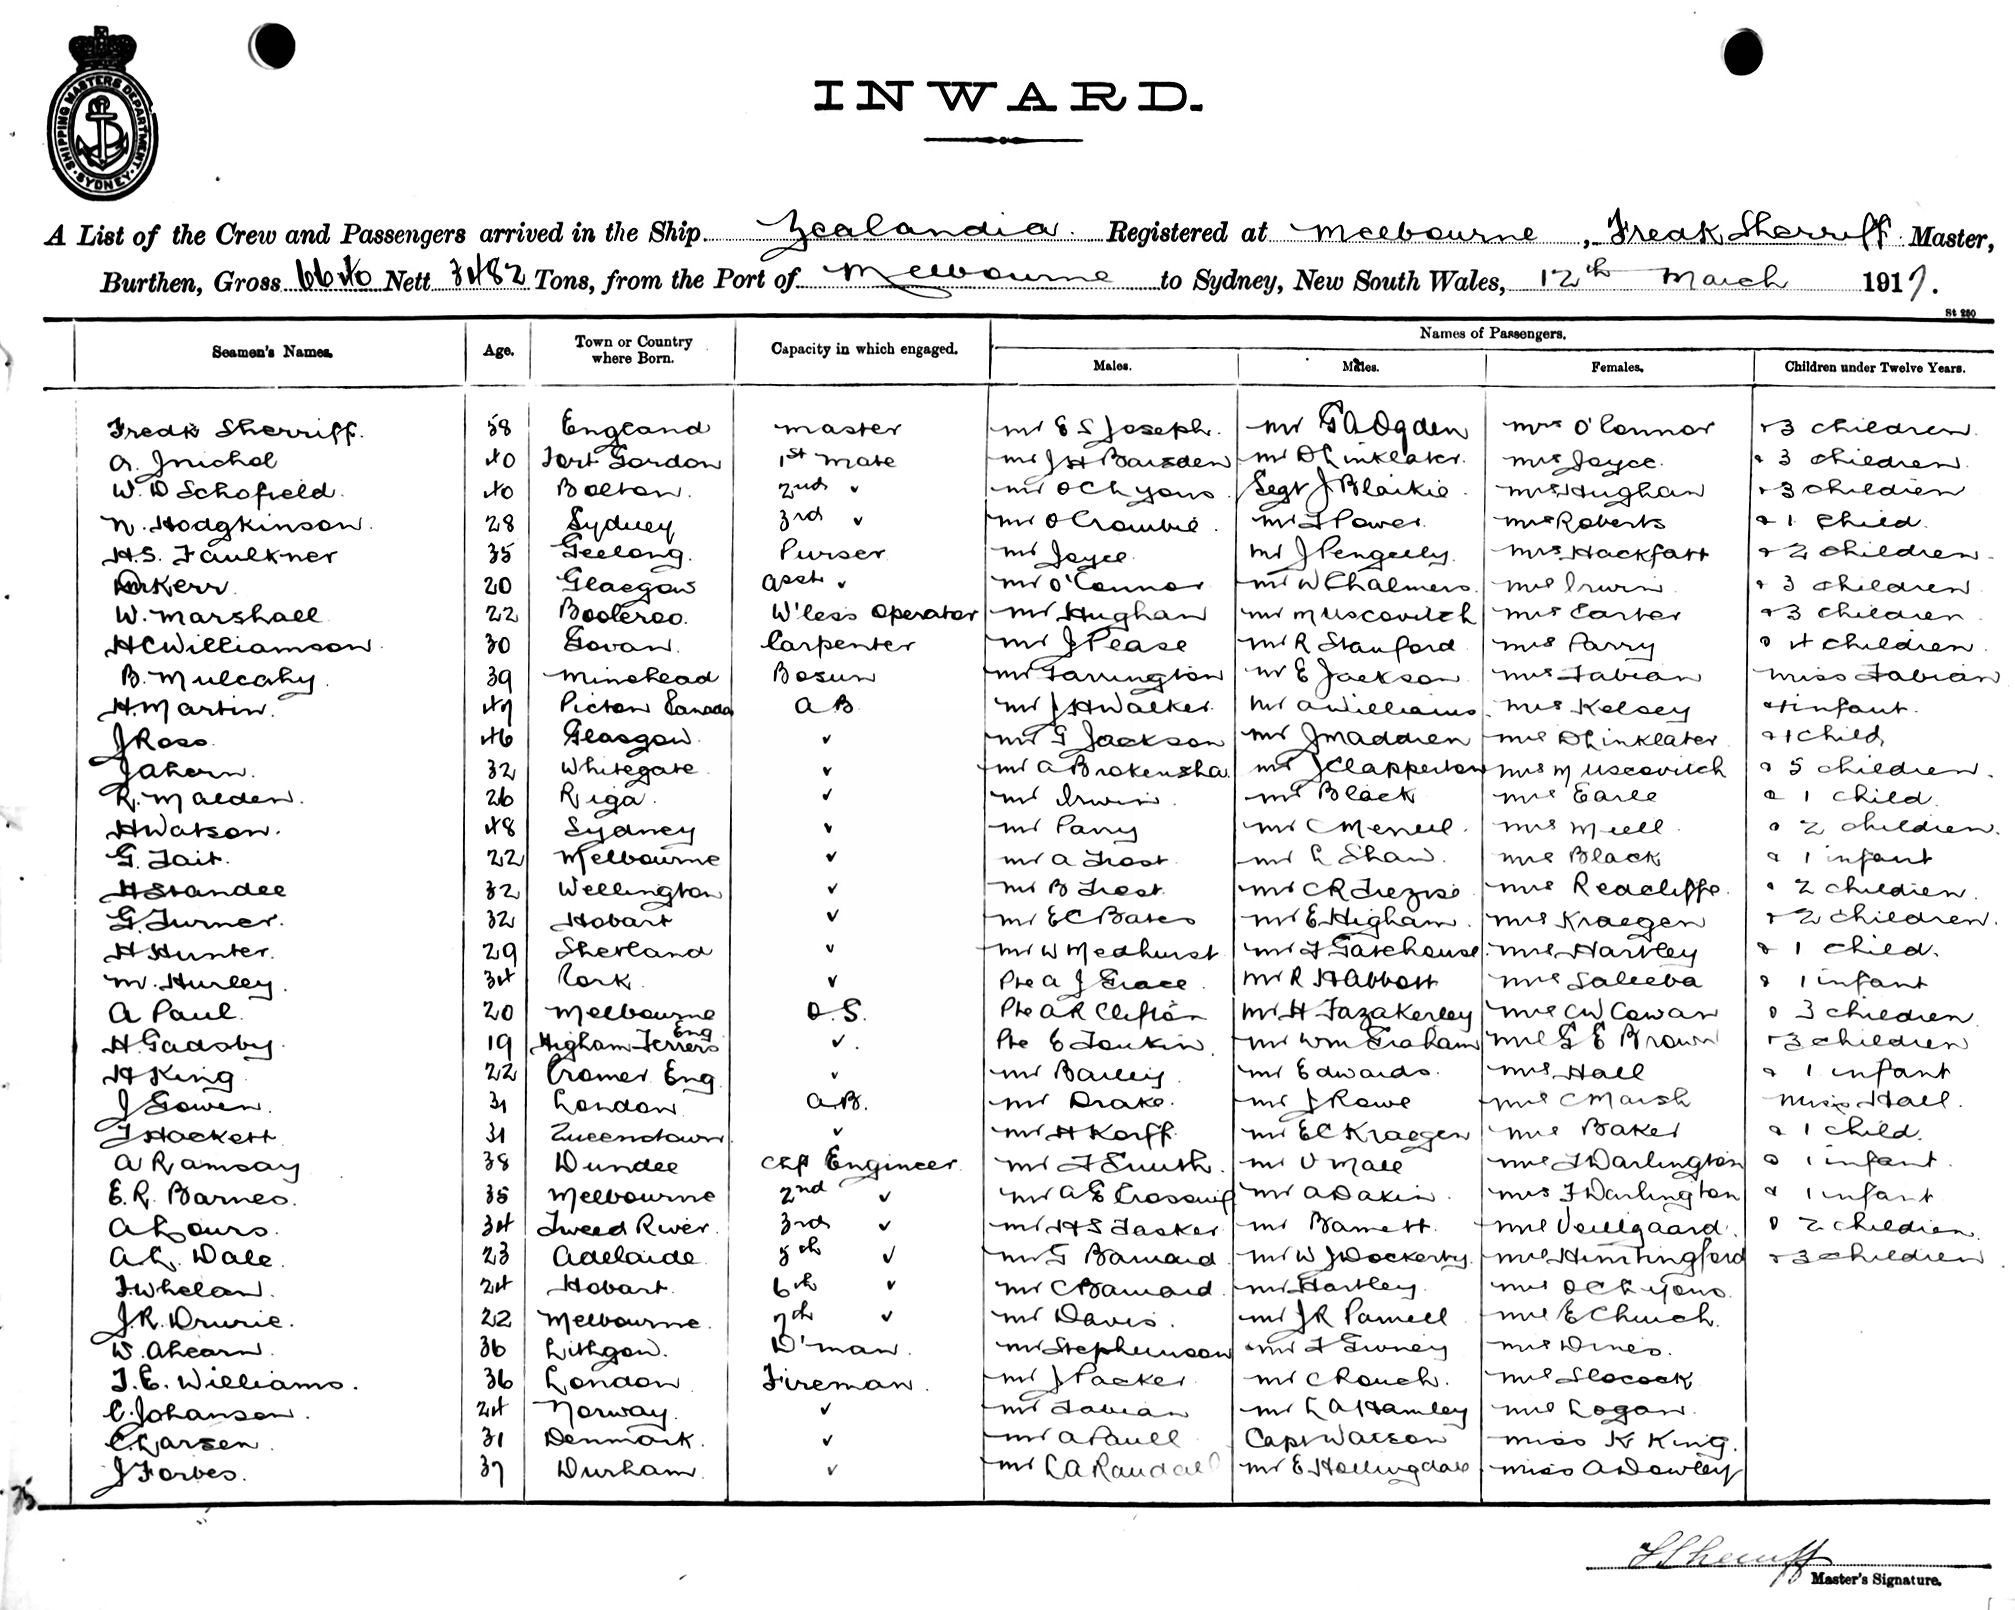 SHIPPING MASTERS DEPARTMENT
SYDNEY
INWARD.
A List of the Crew and Passengers arrived in the Ship Zealandia. Registered at Melbourne, Fredk Sherriff Master,
Burthen, Gross 6640 Nett 3482 Tons, from the Port of Melbourne to Sydney, New South Wales, 12th March 1917.
Names of Passengers.
Seamen's Names. Age. Town or Country where Born. Capacity in which engaged. Males. Males. Females. Children under Twelve Years.
Fredk Sherriff. 58 England master mr E S Joseph. mr G A Ogden mrs O'Connor & 3 children
A. J Nichol 40 Fort Gordon 1st mate mr J H Barsden mr D Linklater. mrs Joyce. & 3 children.
W. D Schofield. 40 Bolton. 2nd " mr O C Lyons. Segt J Blaikie. mrs Hughan & 3 children
N. Hodgkinson. 28 Sydney 3rd " mr O Crombie. mr F Power. mrs Roberts & 1 child.
H.S. Faulkner 35 Geelong. Purser. mr Joyce. mr J Pengelly. mrs Hackfatt & 2 children.
Kerr. 20 Glasgow asst " mr O'Connor mr W Chalmers. mrs Irwin. & 3 children
W. Marshall 22 Booleroo. W'less Operator mr Hughan mr Muscovitch mrs Carter & 3 children
H C Williamson. 30 Govan. Carpenter mr J Pease mr R Stanford mrs Parry & 4 children.
B. Mulcahy. 39 Minehead Bosun mr Farrington mr E Jackson mrs Fabian miss Fabian
H. Martin. 47 Picton Canada A B. mr J H Walker. mr A Williams. mrs Kelsey & 1 infant.
J Ross. 46 Glasgow. " mr G Jackson mr J Madden mrs D Linklater & 1 child
J Ahern. 32 Whitegate. " mr A Brokensha mr J Clapperton mrs Muscovitch & 5 children.
R. Malden. 26 Riga. " mr Irwin. mr Black mrs Earle & 1 child.
H Watson. 48 Sydney " mr Parry mr C Merrell. mrs Miell. & 2 children.
G. Tait. 22 Melbourne " mr A Frost. mr L Shaw. mrs Black & 1 infant
H Standee 32 Wellington " mr B Frost. mr C R Trezise mrs Redcliffe. & 2 children.
G. Turner. 32 Hobart " mr E C Bates mr E Higham. mrs Kraegen & 2 children.
H Hunter. 29 Shetland " mr W Medhurst mr F Gatehouse. mrs Hartley & 1 child.
M. Hurley. 34 Cork. " Pte A J Grace. mr R H Abbott mrs Saleeba & 1 infant
A Paul. 20 Melbourne O.S. Pte A R Clifton mr H Fazakerley mrs C W Cowan & 3 children
H. Gadsby. 19 Higham Ferrers Eng ". Pte E Tonkin. mr Wm Graham mrs G E Brown & 3 children
H King 22 Cromer Eng. " mr Bailey. mr Edwards. mrs Hall & 1 infant
J Gowen. 31 London A.B. mr Drake. mr J Rowe mrs C Marsh miss Hall.
J Hackett 31 Queenstown. " mr H Korff. mr E C Kraegen mrs Baker & 1 child.
A Ramsay 38 Dundee chf Engineer. mr F Smith. mr V Male mrs J Darlington & 1 infant.
E. R. Barnes. 35 Melbourne 2nd " mr A E Crosswif mr A Dakin. mrs J Darlington & 1 infant
A Lours. 34 Tweed River. 3rd " mr H S Tasker mr Barnett. mrs Veilgaard. & 2 children.
A. L. Dale. 23 Adelaide 5th " mr G Barnard. mr W J Dockerty. mrs Huntingford & 3 children
J. Whelan. 24 Hobart. 6th " mr C Barnard. mr Hartley. mrs O C Lyons.
J. R. Drurie. 22 Melbourne. 7th " mr Davis. mr J R Parnell mrs E Church.
W. Ahearn. 36 Lithgow. D'man. mr Stephenson mr F Gurney mrs Dines.
T. E. Williams. 36 London Fireman. mr J Packer. mr C Rouch. mrs Slocock
C. Johansen. 24 Norway. " mr Fabian mr L A Hamley mrs Logan.
C. Larsen. 31 Denmark. " mr A Paull Capt Watson miss K King.
J Forbes. 37 Durham. " mr L A Randall mr E Hollingdale miss A Dowley
Master's Signature.